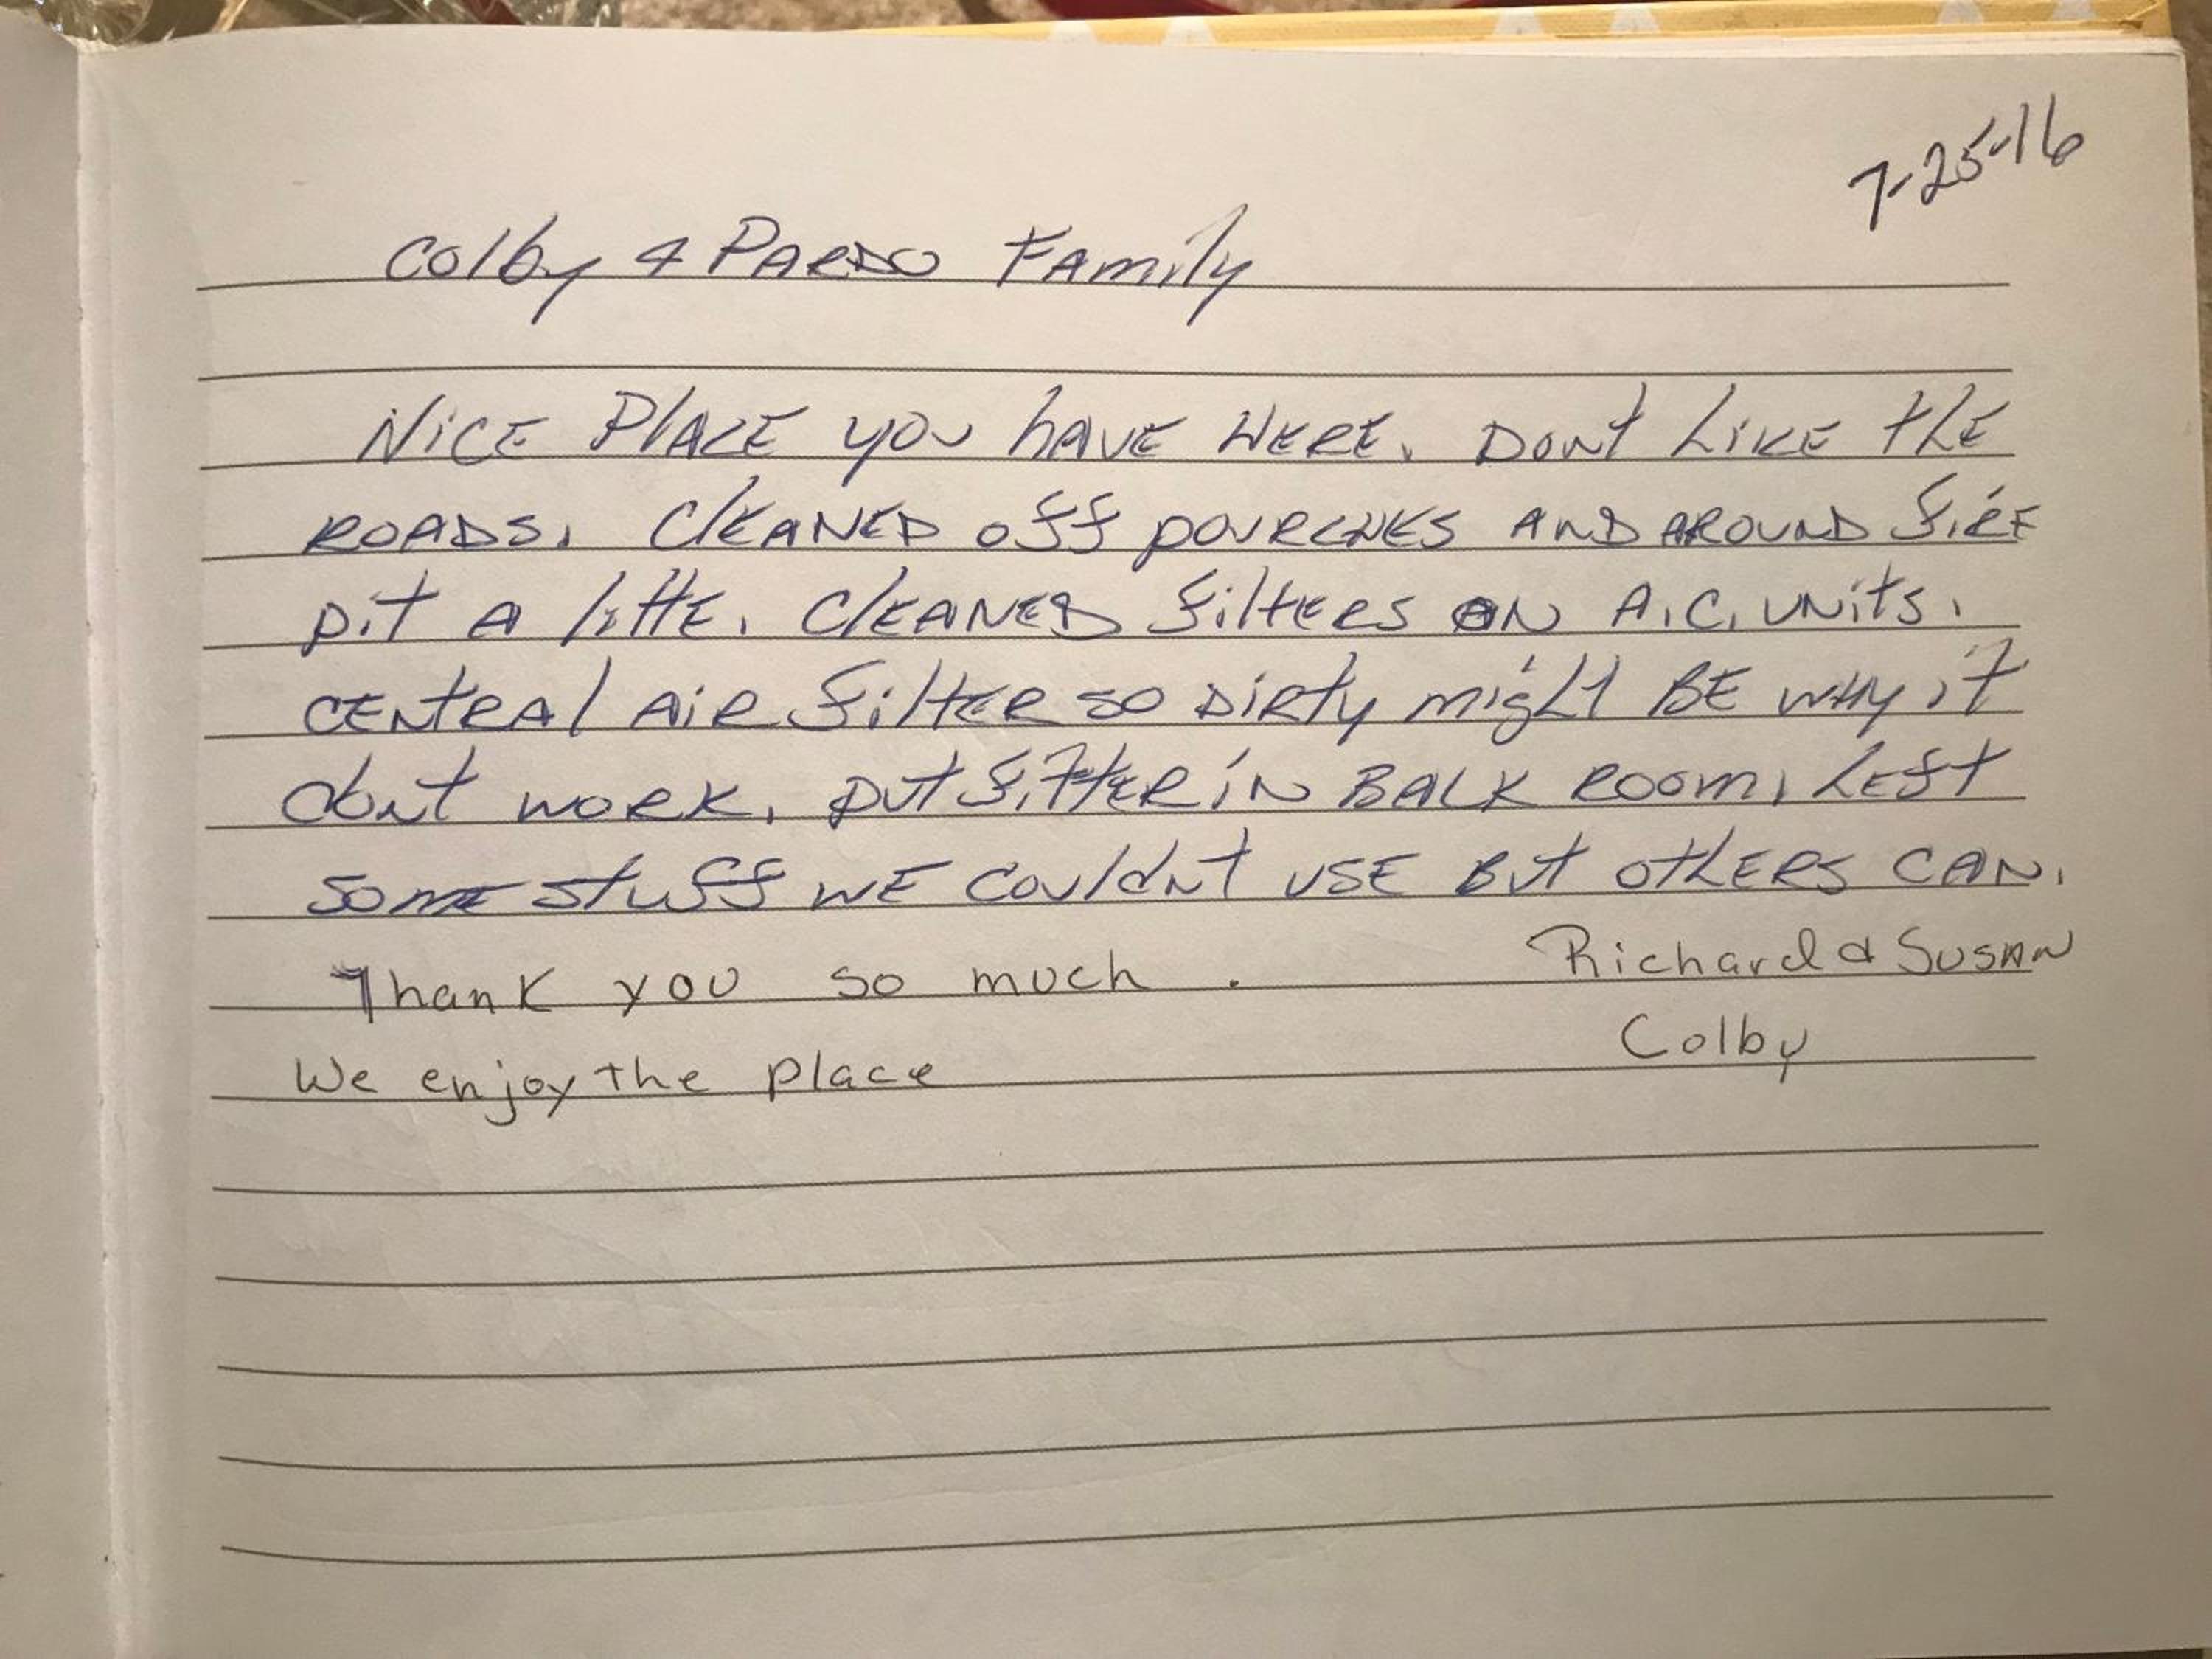 7-25-16
Colby & Pardo Family
Nice Place you have Here. Dont Like the
Roads. Cleaned off pourches and around fire
pit a litte. Cleaned filters on A.C. units.
Central Air filter so Dirty might Be why it
dont work. put filter in Back Room, Left
some stuff we couldnt use But others can.
Thank you so much .
Richard & Susan
Colby
We enjoy the place